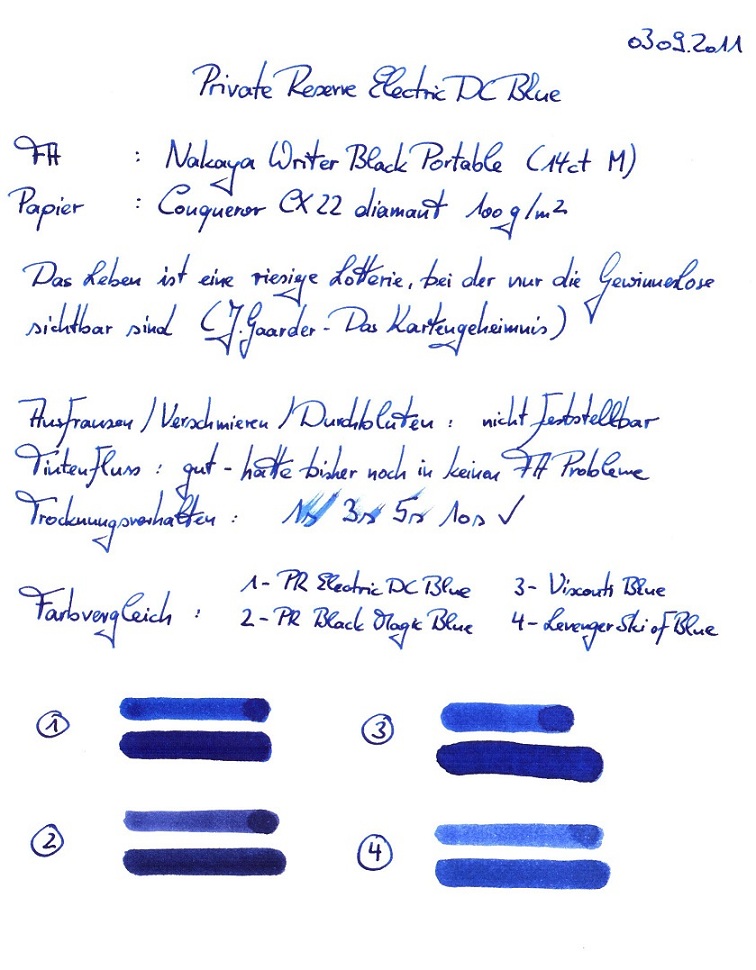 03.09.2011
Private Reserve Electric DC Blue
FH : Nakaya Writer Black Portable (14ct M)
Papier : Conqueror CX 22 diamant 100 g/m2
Das Leben ist eine riesige Lotterie, bei der nur die Gewinnerlose
sichtbar sind (J. Gaarder - Das Kartengeheimnis)
Ausfransen / Verschmieren / Durchbluten : nicht feststellbar
Tintenfluss : gut - hatte bisher noch in keinen FH Probleme
Trocknungsverhalten : 1s 3s 5s 10s ✓
Farbvergleich : 1- PR Electric DC Blue 3- Visconti Blue
2- PR Black Magic Blue 4- Levenger Ski of Blue
1 3
2 4